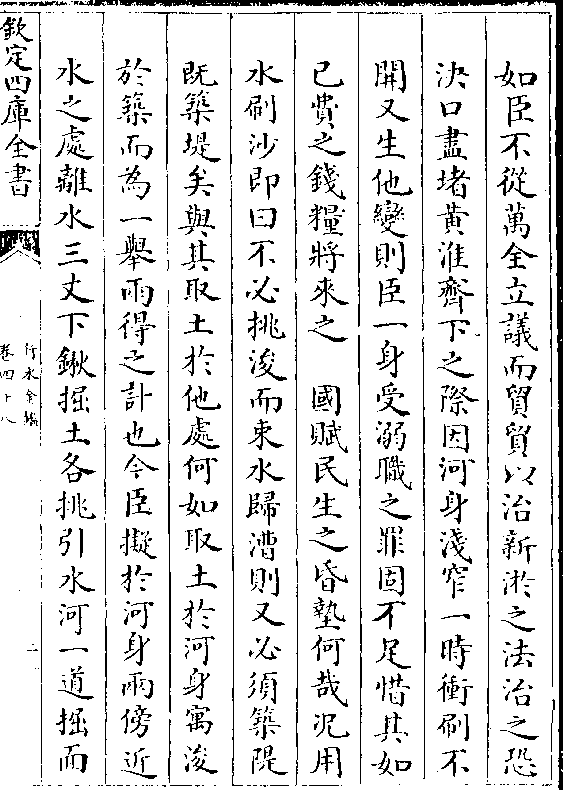 如臣不從萬全立議而貿貿以治新淤之法治之恐
決口盡堵黃淮齊下之際因河身淺窄一時衝刷不
開又生他變則臣一身受溺職之罪固不足惜其如
已費之錢糧將來之　國賦民生之昏墊何哉况用
水刷沙即曰不必挑浚而束水歸漕則又必須築隄
既築堤矣與其取土於他處何如取土於河身寓浚
於築而為一舉兩得之計也今臣擬於河身兩傍近
水之處離水三丈下鍬掘土各挑引水河一道掘面
欽定四庫全書
行水金鑑
卷四十八
二